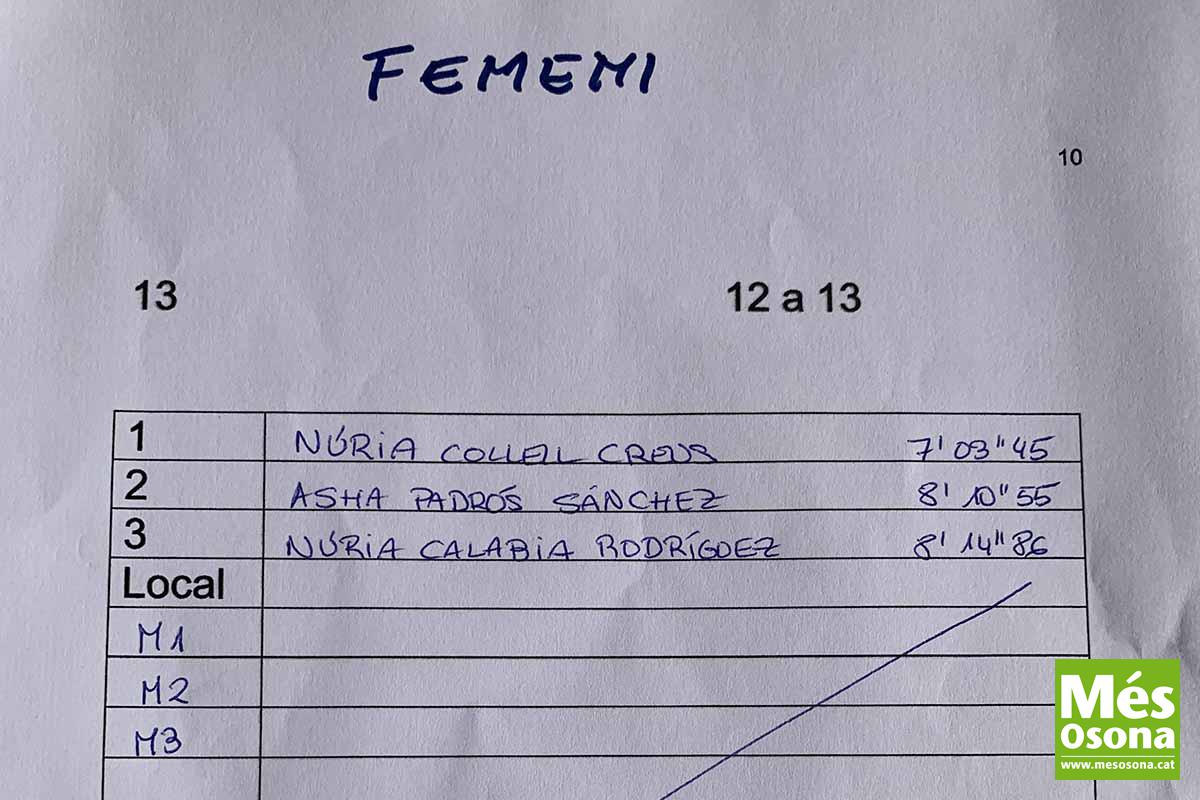 FEMEMI
10
13 12 a 13
1 NÚRIA COLLELL CREUS 7' 03" 45
2 ASHA PADRÓS SÁNCHEZ 8' 10" 55
3 NÚRIA CALABIA RODRÍGUEZ 8' 14" 86
Local
M1
M2
M3
Més
Osona
www.mesosona.cat